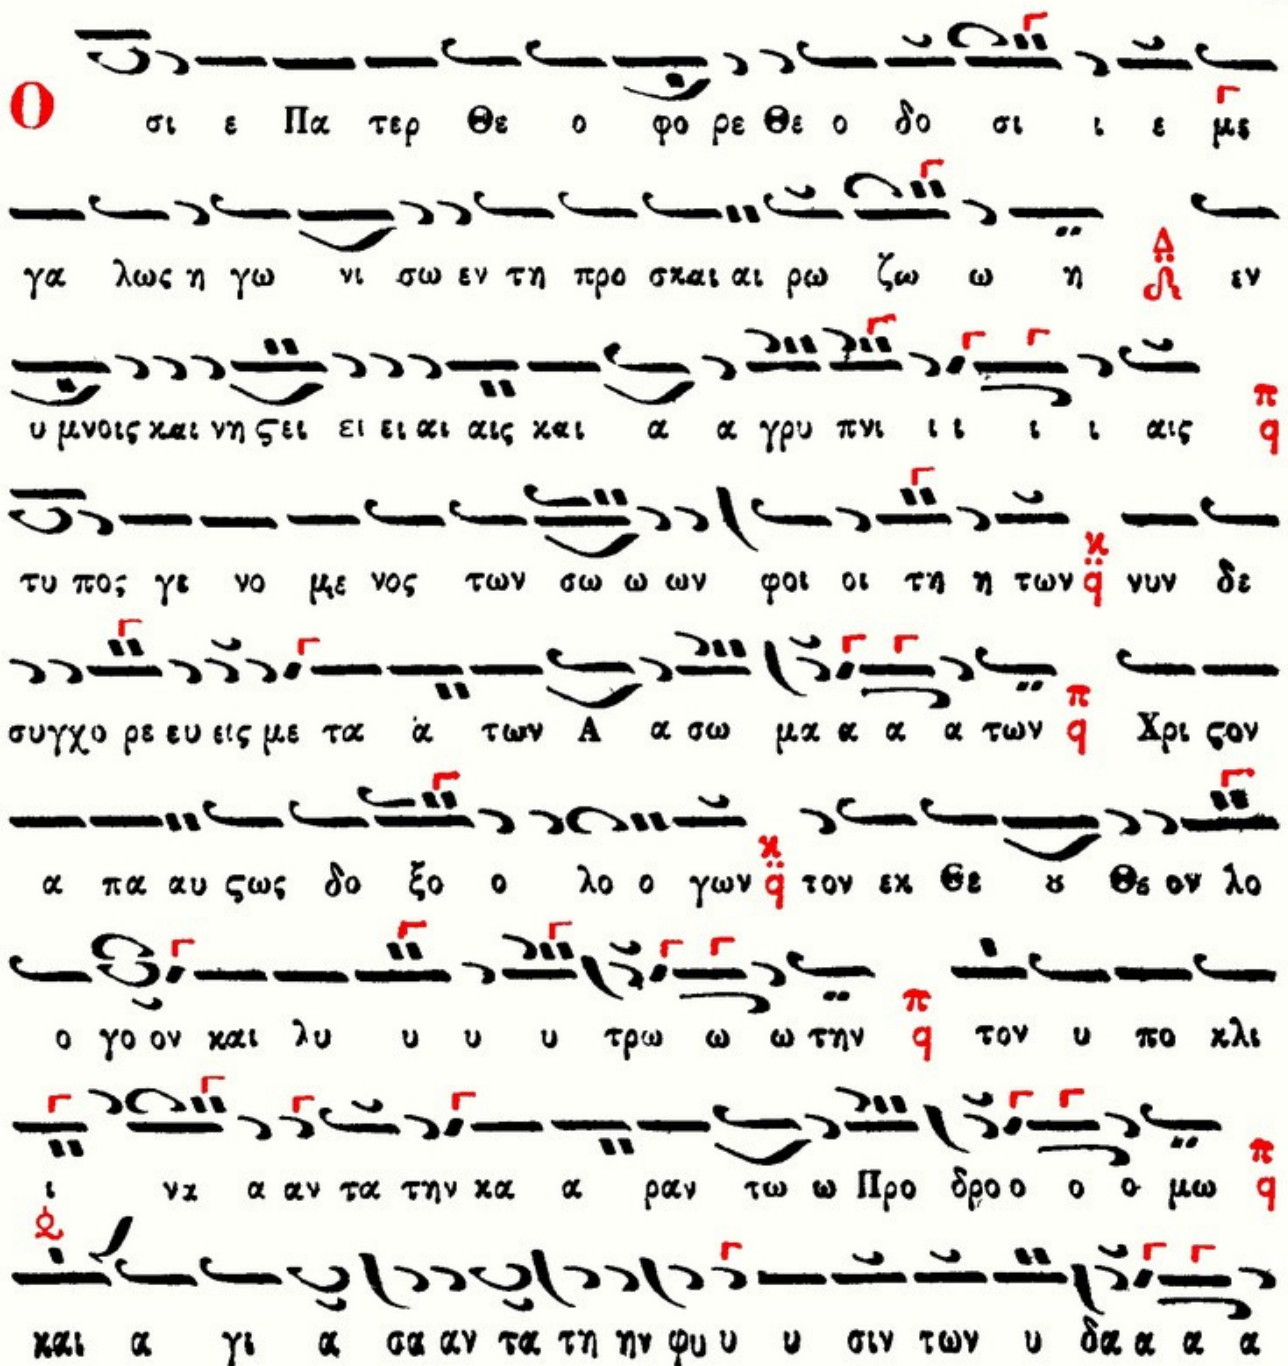 Ο σι ε Πα τερ Θε ο φο ρε Θε ο δο σι ι ε με
γα λως η γω νι σω εν τη προ σκαι αι ρω ζω ω η εν
υ μνοις και νη ϛει ει ει αι αις και α α γρυ πνι ι ι ι ι αις
τυ πος γε νο με νος των σω ω ων φοι οι τη η των νυν δε
συγχο ρε ευ εις με τα α των Α α σω μα α α α των Χρι ϛον
α πα αυ ϛως δο ξο ο λο ο γων τον εκ Θε ȣ Θε ον λο
ο γο ον και λυ υ υ υ τρω ω ω την τον υ πο κλι
ι να α αν τα την κα α ραν τω ω Προ δρο ο ο ο μω
και α γι α σα αν τα τη ην φυ υ υ σιν των υ δα α α α